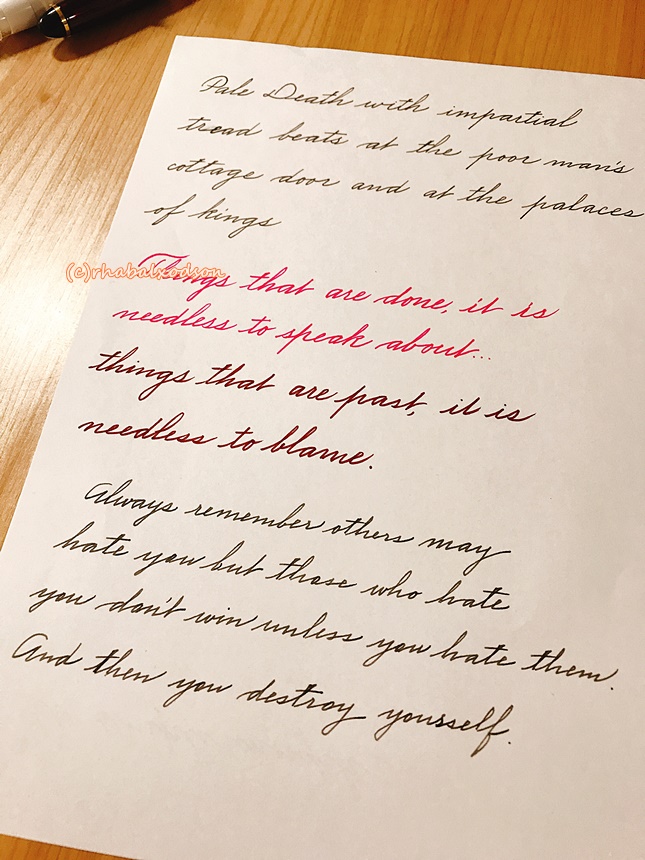 Pale Death with impartial
tread beats at the poor man's
cottage door and at the palaces
of kings
(c)rhabalxodson
Things that are done, it is
needless to speak about...
things that are past, it is
needless to blame.
Always remember others may
hate you but those who hate
you don't win unless you hate them.
And then you destroy yourself.